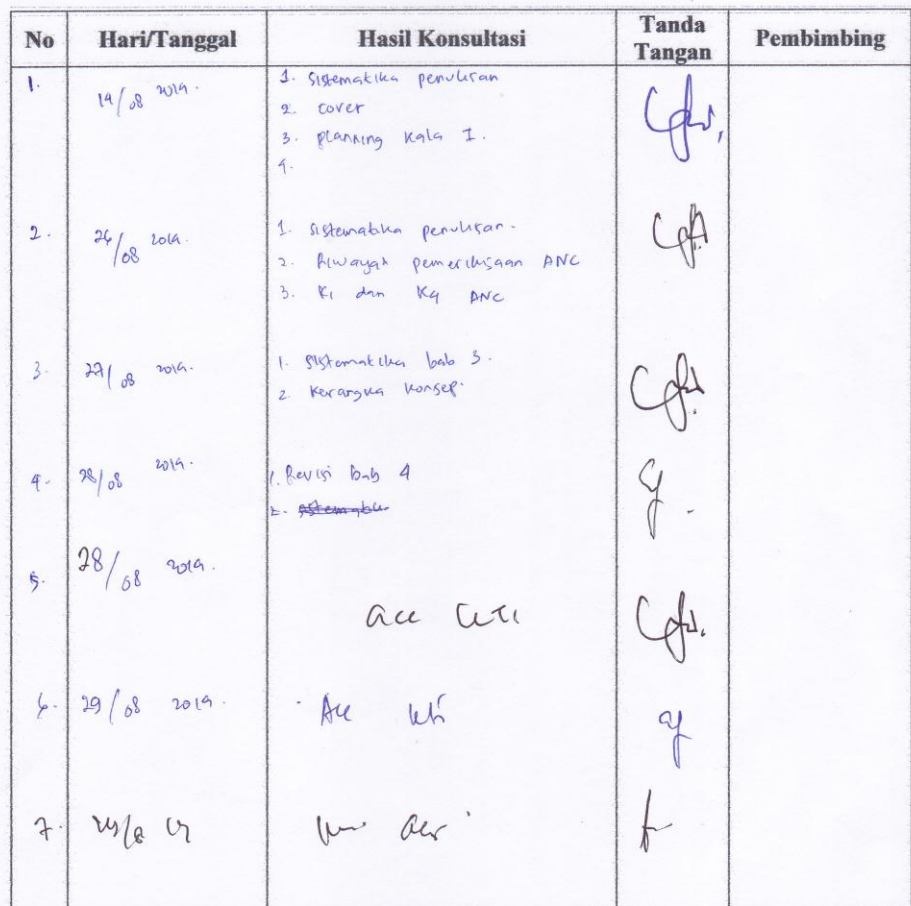 No Hari/Tanggal Hasil Konsultasi Tanda Tangan Pembimbing
1. 19/08 2019. 1. Sistematika penulisan
2. cover
3. planning Kala I.
4.
2. 26/08 2019. 1. Sistematika penulisan.
2. Riwayat pemeriksaan ANC
3. K1 dan K4 ANC
3. 27/08 2019. 1. Sistematika bab 3.
2. Kerangka konsep.
4. 28/08 2019. 1. Revisi bab 4
2.
5. 28/08 2019. acc KTI
6. 29/08 2019. Acc kti
7. acc